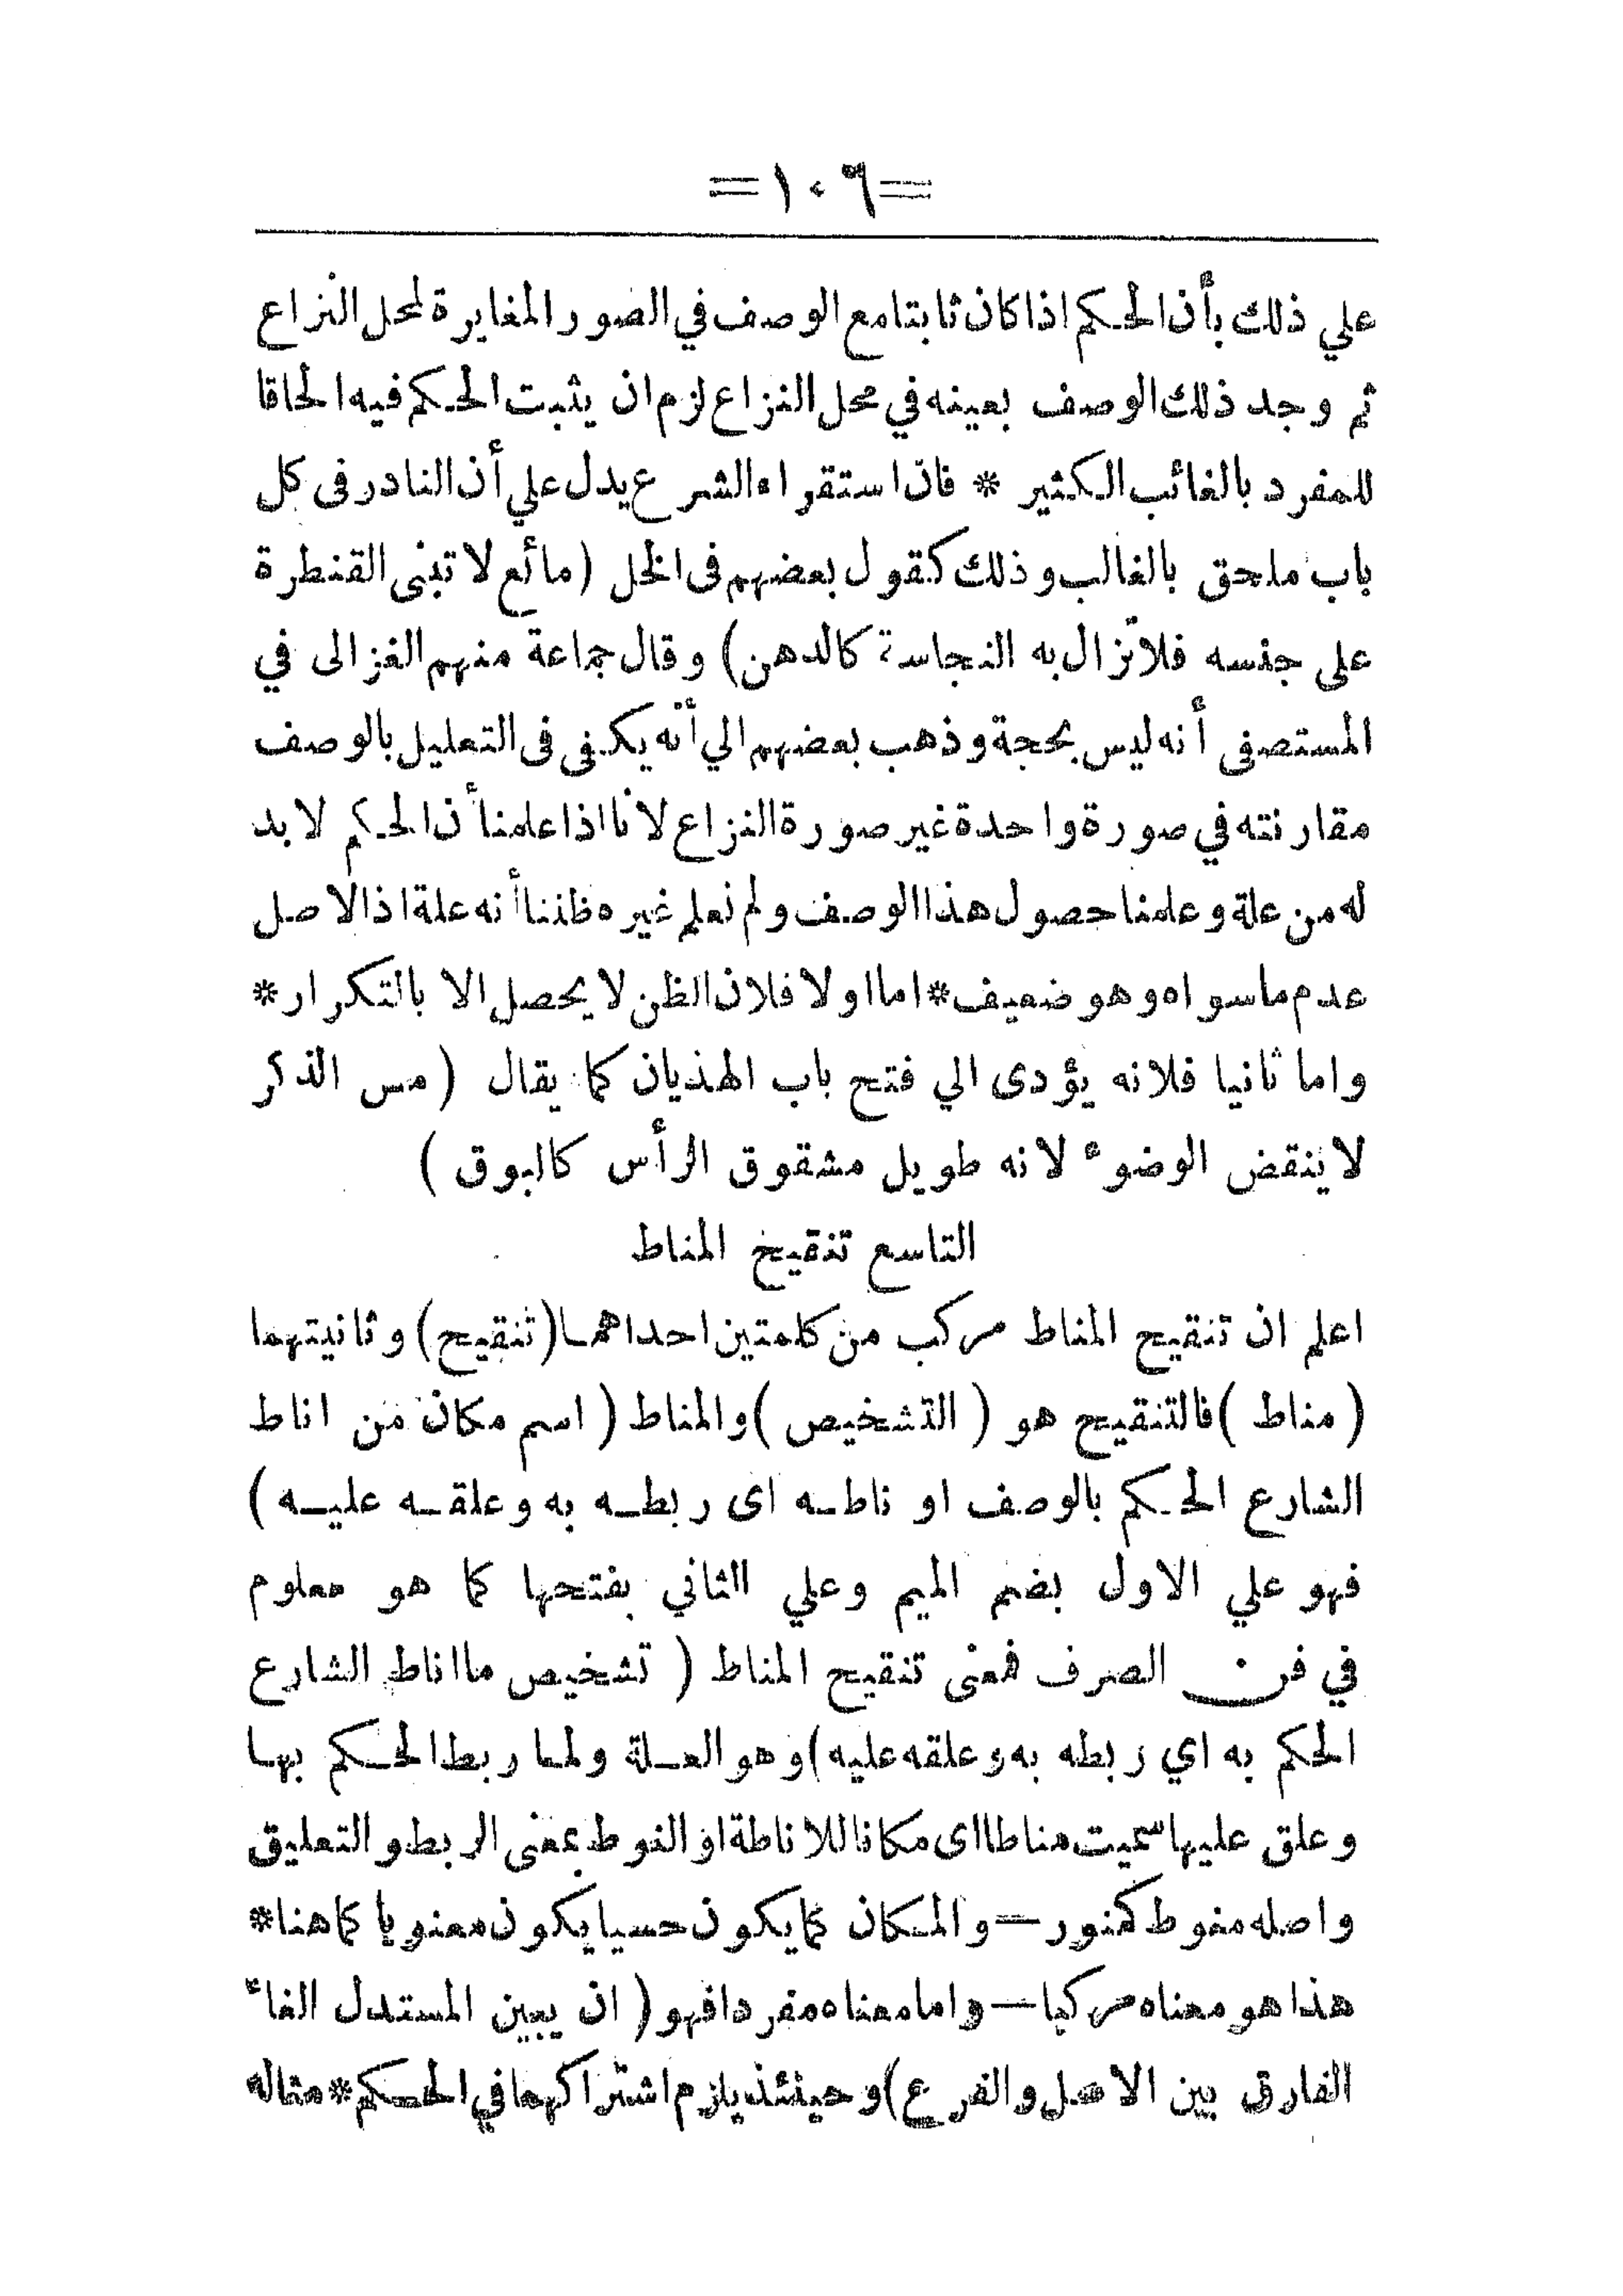 =١٠٩=
علي ذلك بأن الحكم اذا كان ثابتا مع الوصف في الصور المغايرة لمحل النزاع
ثم وجد ذلك الوصف بعينه في محل النزاع لزم ان يثبت الحكم فيه الحاقا
للمفرد بالغائب الكثير * فان استقراء الشرع يدل علي أن النادر فى كل
باب ملحق بالغالب وذلك كقول بعضهم فى الخل (مائع لا تبنى القنطرة
على جنسه فلا تزال به النجاسة كالدهن) وقال جماعة منهم الغزالى في
المستصفى أنه ليس بحجة وذهب بعضهم الي أنه يكفى فى التعليل بالوصف
مقارنته في صورة واحدة غير صورة النزاع لانا اذا علمنا أن الحكم لا بد
له من علة وعلمنا حصول هذا الوصف ولم نعلم غيره ظننا أنه علة اذ الاصل
عدم ما سواه وهو ضعيف * اما اولا فلان الظن لا يحصل الا بالتكرار *
واما ثانيا فلانه يؤدى الي فتح باب الهذيان كما يقال (مس الذكر
لا ينقض الوضوء لانه طويل مشقوق الرأس كالبوق)
التاسع تنقيخ المناط
اعلم ان تنقيح المناط مركب من كلمتين احداهما (تنقيح) وثانيتهما
(مناط) فالتنقيح هو (التشخيص) والمناط (اسم مكان من اناط
الشارع الحكم بالوصف او ناطه اى ربطه به وعلقه عليه)
فهو علي الاول بضم الميم وعلي الثاني بفتحها كما هو معلوم
في فن الصرف فمعنى تنقيح المناط (تشخيص ما اناط الشارع
الحكم به اي ربطه به وعلقه عليه) وهو العلة ولما ربط الحكم بها
وعلق عليها سميت مناطا اى مكانا للاناطة او النوط بمعنى الربط والتعليق
واصله منوط كمنور — والمكان كما يكون حسيا يكون معنويا كما هنا *
هذا هو معناه مركبا — واما معناه مفردا فهو (ان يبين المستدل الغاء
الفارق بين الاصل والفرع) وحينئذ يلزم اشتراكهما في الحكم * مثاله